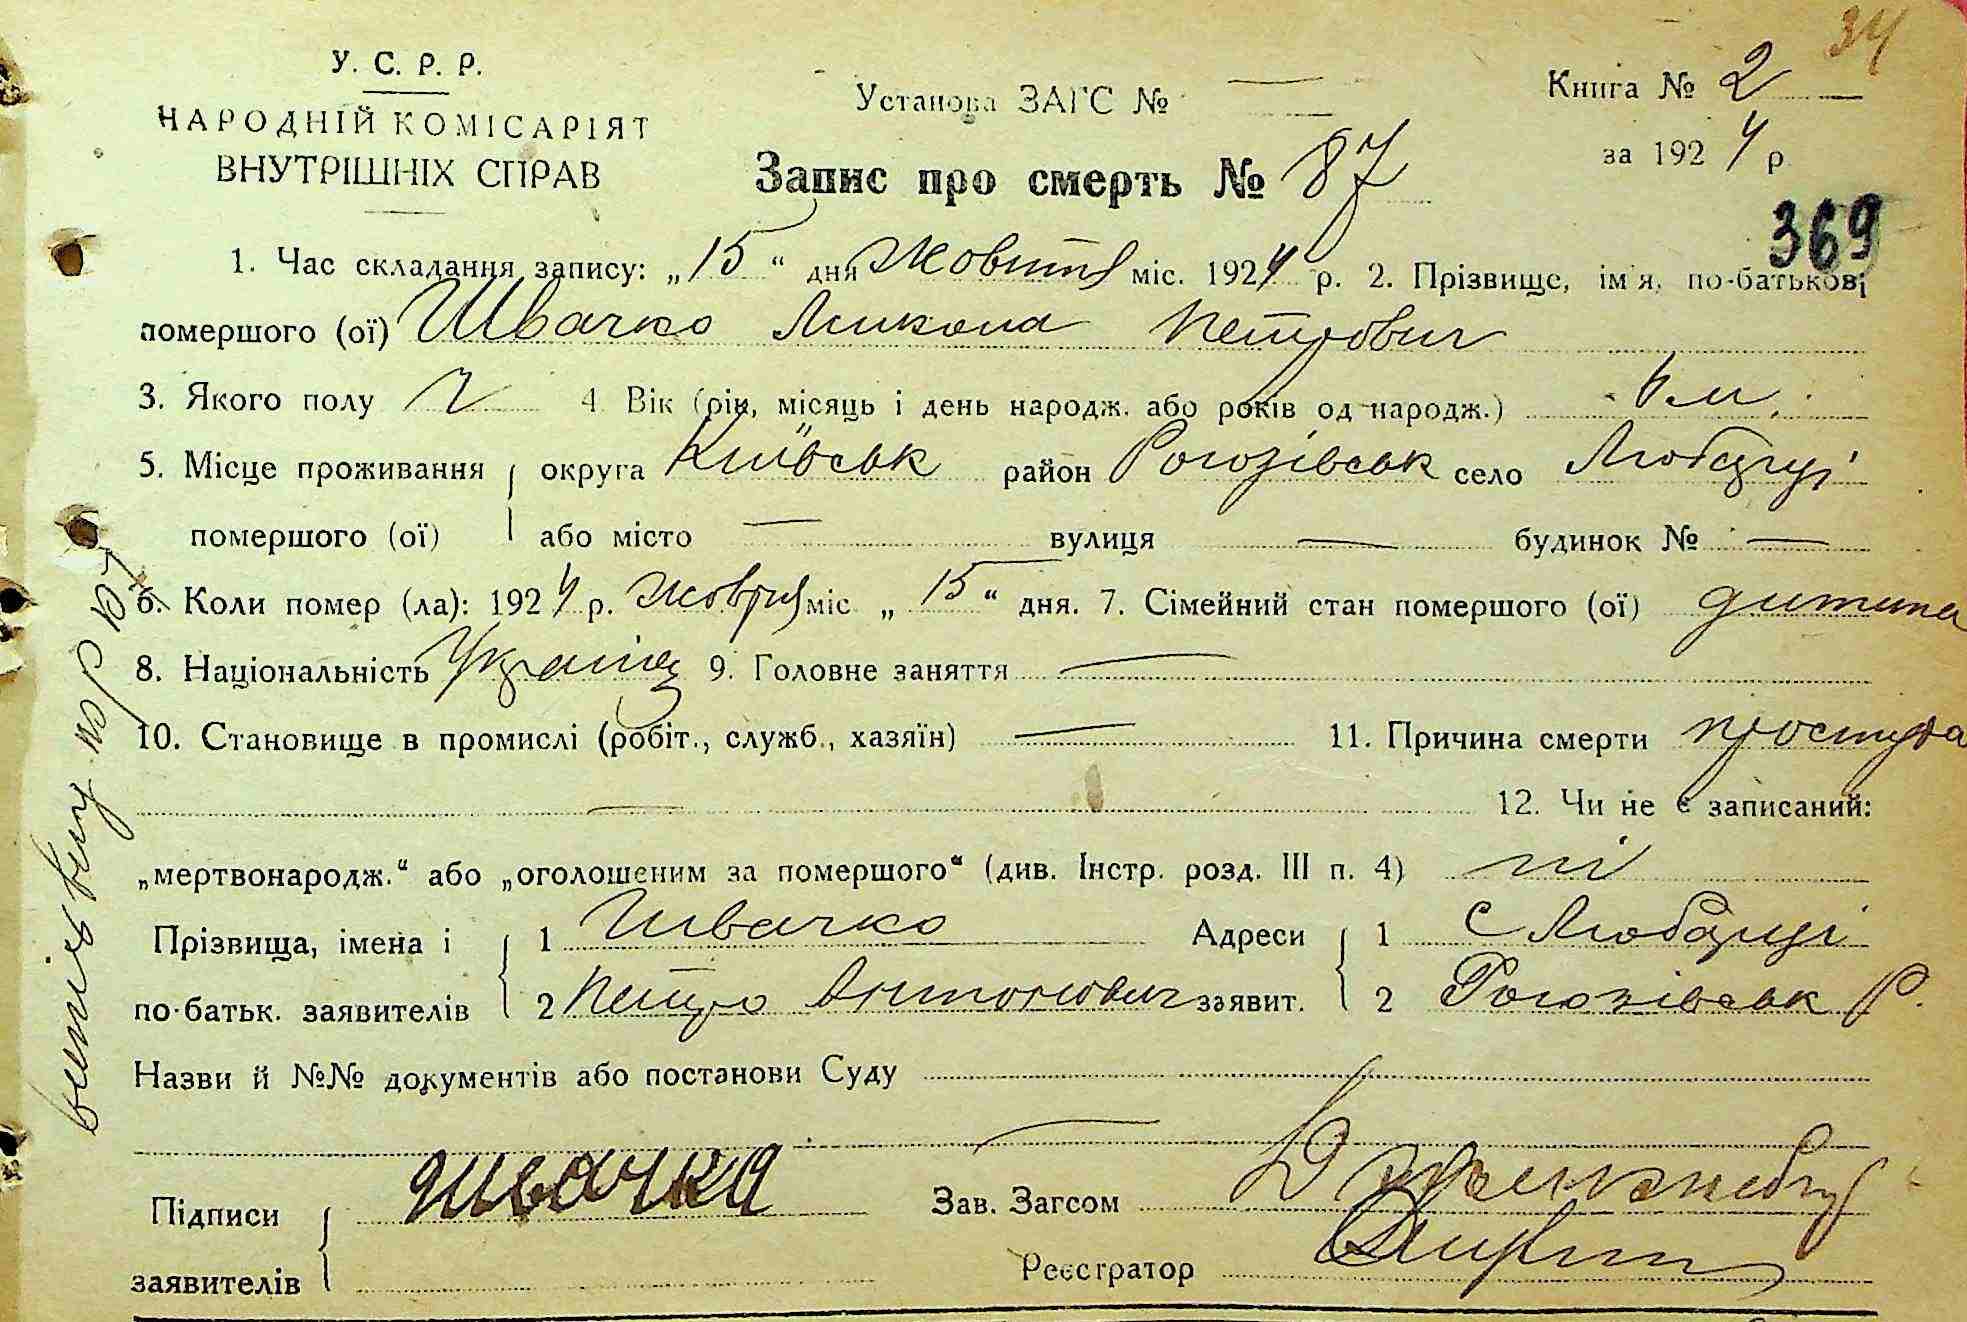 34
У. С. Р. Р.
НАРОДНІЙ КОМІСАРІЯТ
ВНУТРІШНІХ СПРАВ
Установа ЗАГС № —
Книга № 2
за 1924 р.
Запис про смерть № 87
369
1. Час складання запису: „15“ дня Жовтня міс. 1924 р. 2. Прізвище, ім'я, по-батькові
помершого (ої) Швачко Микола Петрович
3. Якого полу ч 4. Вік (рік, місяць і день народж. або років од народж.) 6 м.
5. Місце проживання округа Київськ район Рогозівськ село Любарці
помершого (ої) або місто — вулиця — будинок № —
6. Коли помер (ла): 1924 р. жовтня міс „15“ дня. 7. Сімейний стан помершого (ої) дитина
8. Національність Україн 9. Головне заняття —
10. Становище в промислі (робіт., служб., хазяїн) — 11. Причина смерти простуда
— 12. Чи не є записаний:
„мертвонародж.“ або „оголошеним за помершого“ (див. Інстр. розд. III п. 4) ні
Прізвища, імена і 1 Швачко Адреси 1 с Любарці
по-батьк. заявителів 2 Петро Антонович заявит. 2 Рогозівськ Р.
Назви й №№ документів або постанови Суду
—
Підписи швачка Зав. Загсом
заявителів Реєстратор
витяг